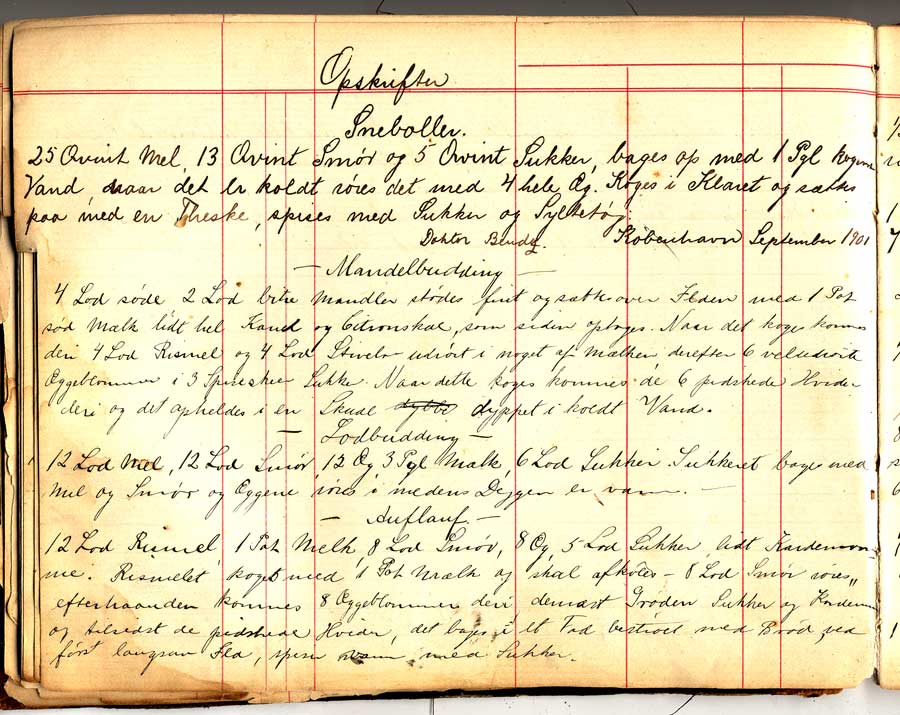 Opskrifter
Sneboller.
25 Qvint Mel, 13 Qvint Smør og 5 Qvint Sukker, bages op med 1 Pgl kogene
Vand, naar det er koldt røres det med 4 hele Æg. Koges i Klaret og sættes
paa med en Theske, spises med Sukker og Syltetøj.
Doktor København September 1901
— Mandelbudding —
4 Lod søde 2 Lod bitre Mandler stødes fint og sættes over Ilden med 1 Pot
sød Mælk lidt hel Kanel og Citronskal, som siden optages. Naar det koger kommes
deri 4 Lod Rismel og 4 Lod Stivelse udrørt i noget af Mælken derefter 6 veludrørte
Æggeblommer i 3 Spiseskeer Sukker. Naar dette koges kommes de 6 pidskede Hvider
deri og det opheldes i en Skaal dyppet i koldt Vand.
— Lodbudding —
12 Lod Mel, 12 Lod Smør, 12 Æg 3 Pgl Mælk, 6 Lod Sukker. Sukkeret bages med
Mel og Smør og Æggene røres i medens Dejgen er varm. —
— Auflauf —
12 Lod Rismel, 1 Pot Melk, 8 Lod Smør, 8 Æg, 5 Lod Sukker, lidt Kardemom-
me. Rismelet koges med 1 Pot Mælk og skal afkøles – 8 Lod Smør røres,,
efterhaanden kommes 8 Æggeblommer deri dernæst Grøden Sukker og Kardemom
og tilsidst de pidskede Hvider, det bages i et Fad bestroet med Brød ved
først langsom Ild, spises varm med Sukker.